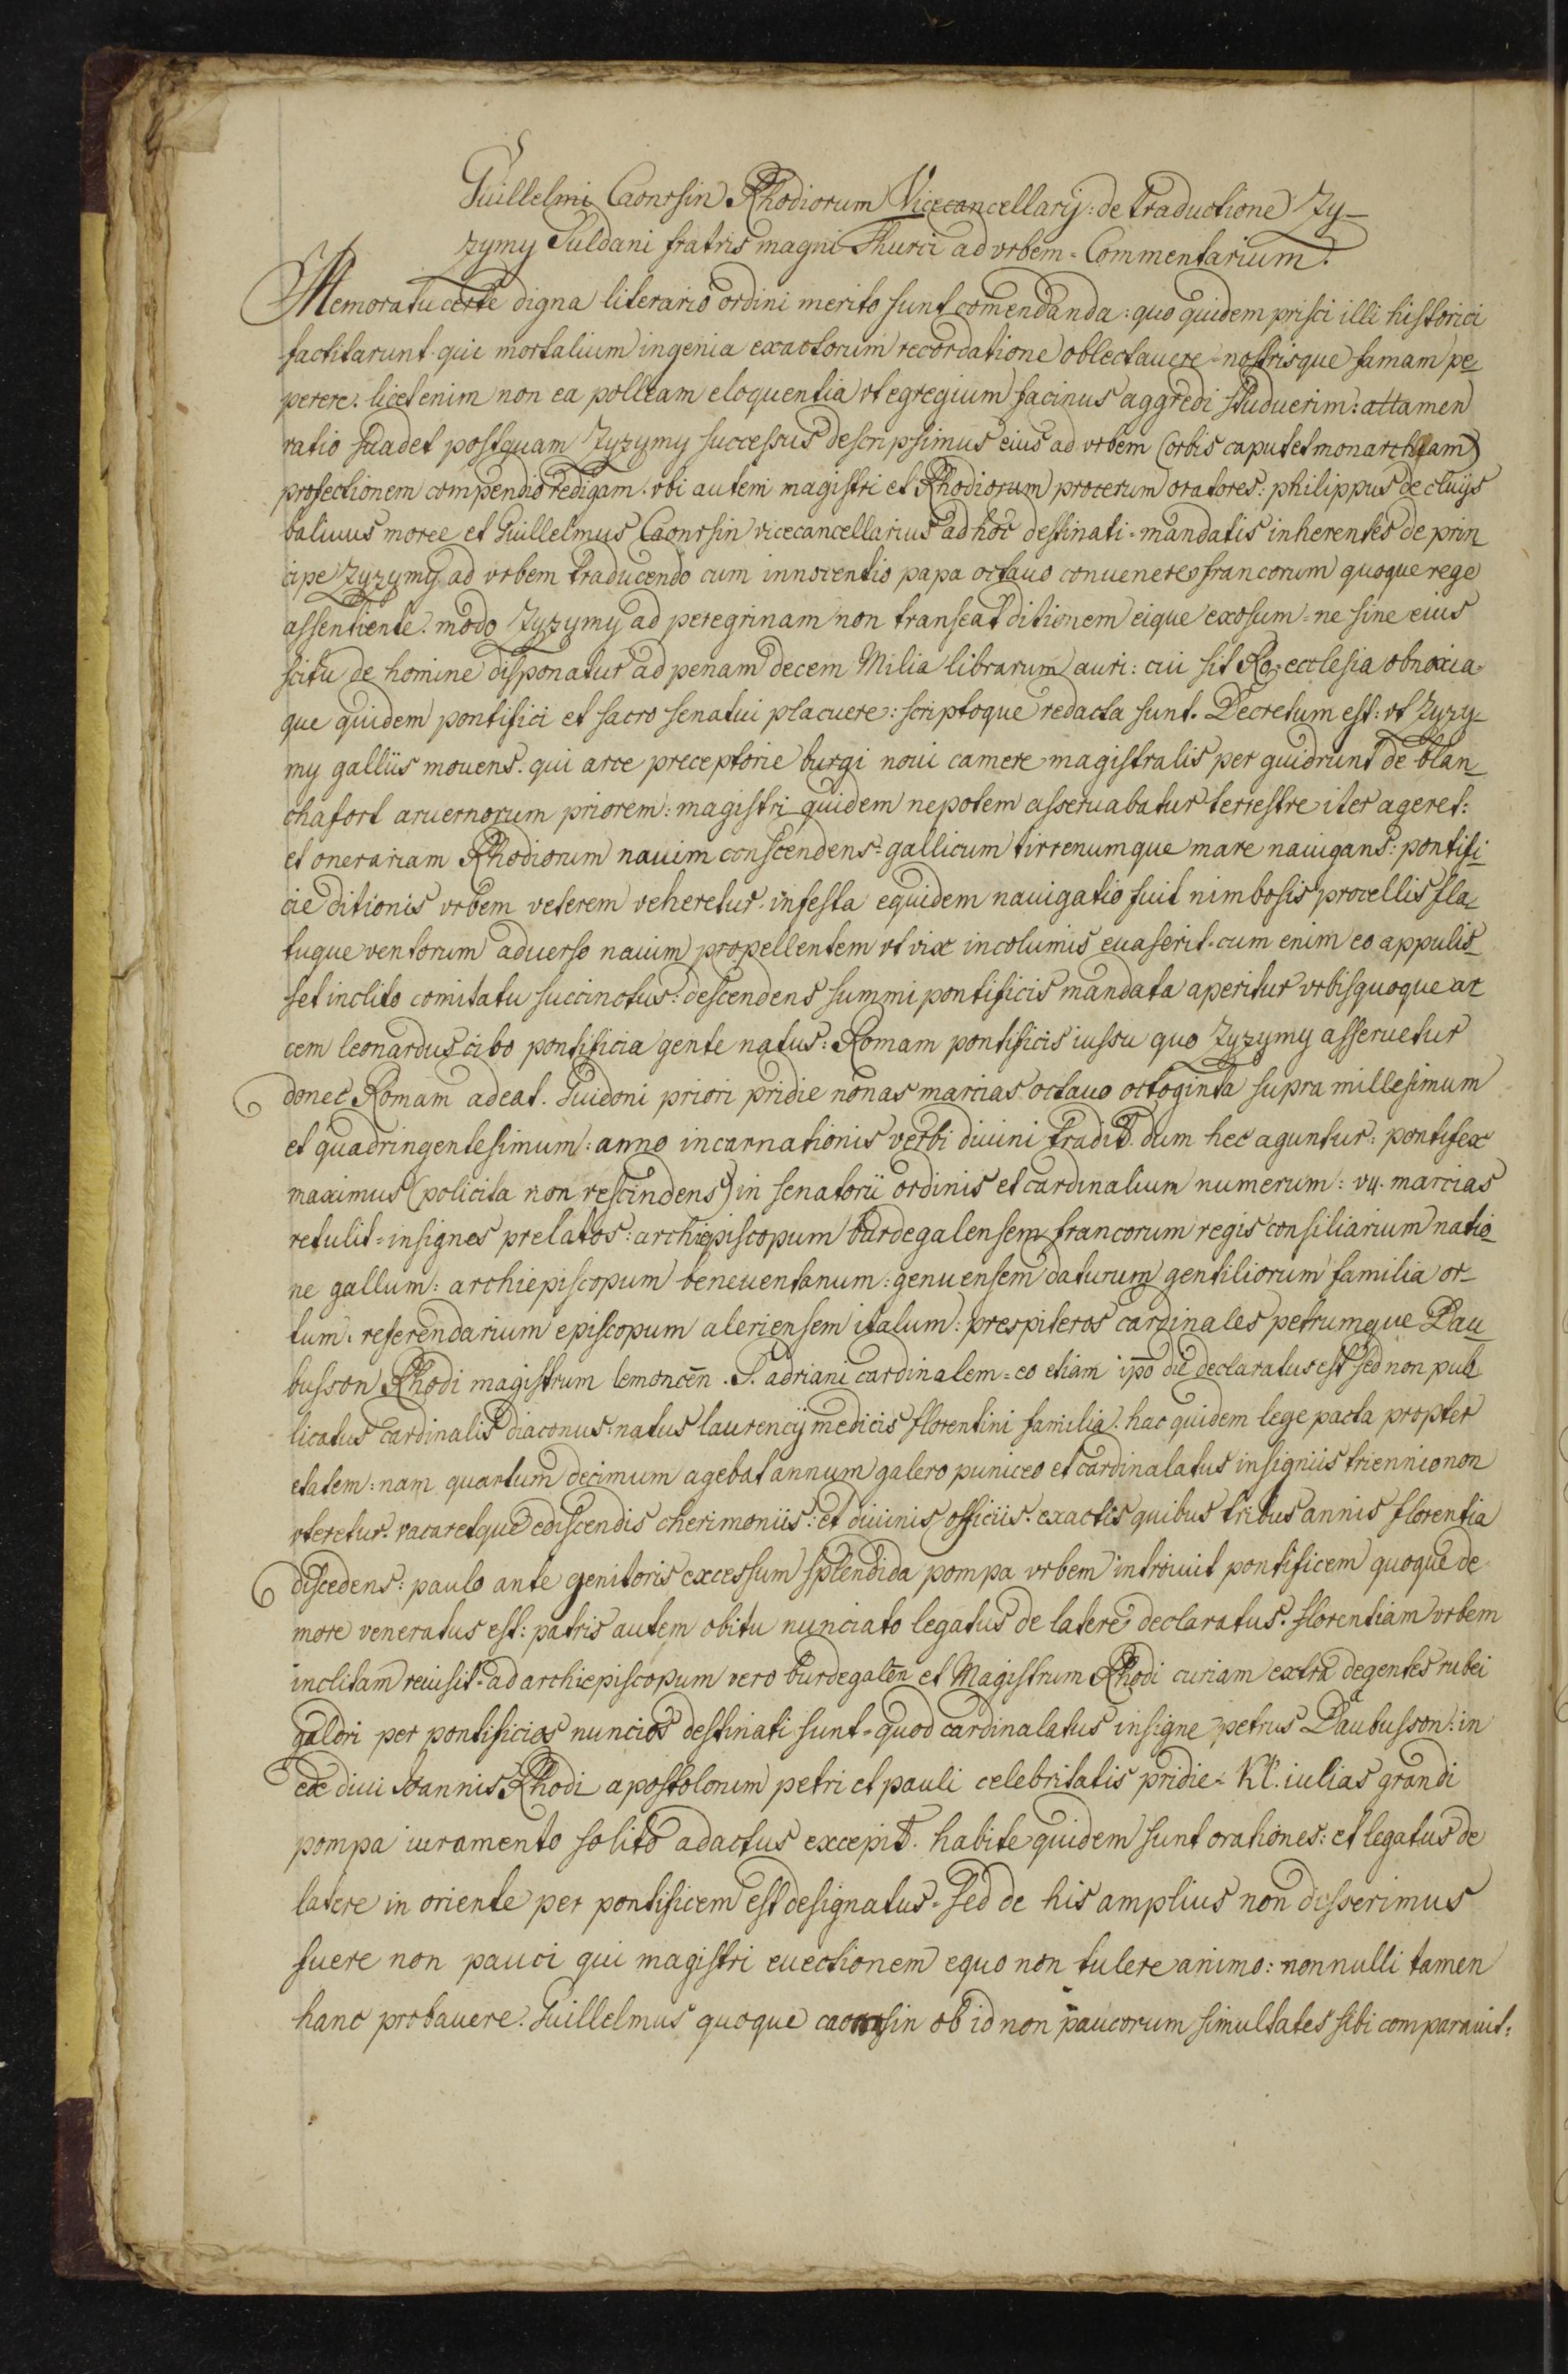 Guillelmi Caonrsin Rhodiorum Vicecancellarij: de traductione Zy-
zymy Suldani fratris magni Thurci ad vrbem = Commentarium.
Memoratu certe digna literario ordini merito sunt comendanda: quo quidem prisci illi historici
factitarunt. qui mortalium ingenia exactorum recordatione oblectauere = nostrisque famam pe-
perere. licet enim non ea polleam eloquentia vt egregium facinus aggredi studuerim: attamen
ratio suadet postquam Zyzymy successus descripsimus eius ad vrbem (orbis caput et monarchiam)
profectionem compendio redigam. vbi autem magistri et Rhodiorum procerum oratores: philippus de cluys
baliuus moree et Guillelmus Caonrsin vicecancellarius ad hoc destinati = mandatis inherentes de prin-
cipe Zyzymy ad vrbem traducendo cum innocentio papa octauo conuenere francorum quoque rege
assentiente. modo Zyzymy ad peregrinam non transeat ditionem eique exosum = ne sine eius
scitu de homine disponatur ad penam decem Milia librarum auri: cui sit Ro: ecclesia obnoxia =
que quidem pontifici et sacro senatui placuere: scriptoque redacta sunt. Decretum est: vt Zyzy-
my galliis mouens. qui arce preceptorie burgi noui camere magistralis per guidrunt de blan-
chafort aruernorum priorem: magistri quidem nepotem asseruabatur terrestre iter ageret:
et onerariam Rhodiorum nauim conscendens = gallicum tirrenumque mare nauigans: pontifi-
cie ditionis vrbem veterem veheretur. infesta equidem nauigatio fuit nimbosis procellis fla-
tuque ventorum aduerso nauim propellentem vt vix incolumis euaserit. cum enim eo appulis-
set inclito comitatu succinctus: descendens summi pontificis mandata aperitur vrbisquoque ar
cem leonardus cibo pontificia gente natus: Romam pontificis iussu quo Zyzymy asseruetur
donec Romam adeat. Guidoni priori pridie nonas marcias octauo octoginta supra millesimum
et quadringentesimum: anno incarnationis verbi diuini tradit. dum hec aguntur: pontifex
maximus (policita non rescindens) in senatorii ordinis et cardinalium numerum: v4. marcias
retulit = insignes prelatos: archiepiscopum burdegalensem francorum regis consiliarium natio-
ne gallum: archiepiscopum beneuentanum: genuensem daturum gentiliorum familia or-
tum. referendarium episcopum aleriensem italum: prespiteros cardinales petrumque Dau-
busson Rhodi magistrum lemoncen̄. S. adriani cardinalem = eo etiam ip̄o die declaratus est sed non pub
licatus cardinalis diaconus: natus laurencij medicis florentini familia. hac quidem lege pacta propter
etatem: nam quartum decimum agebat annum galero puniceo et cardinalatus insigniis triennio non
vteretur. vacaretque ediscendis cherimoniis: et diuinis officiis. exactis quibus tribus annis florentia
discedens: paulo ante genitoris excessum splendida pompa vrbem introiuit pontificem quoque de
more veneratus est: patris autem obitu nunciato legatus de latere declaratus. florentiam vrbem
inclitam reuisit = ad archiepiscopum vero burdegalen̄ et Magistrum Rhodi curiam extra degentes rubei
galeri per pontificios nuncios destinati sunt = quod cardinalatus insigne petrus Daubusson: in
ede diui Ioannis Rhodi apostolorum petri et pauli celebritatis pridie = Kl. iulias grandi
pompa iuramento solito adactus excepit. habite quidem sunt orationes: et legatus de
latere in oriente per pontificem est designatus = sed de his amplius non disserimus
fuere non pauci qui magistri euectionem equo non tulere animo: nonnulli tamen
hanc probauere. Guillelmus quoque caonrsin ob id non paucorum simultates sibi comparauit: